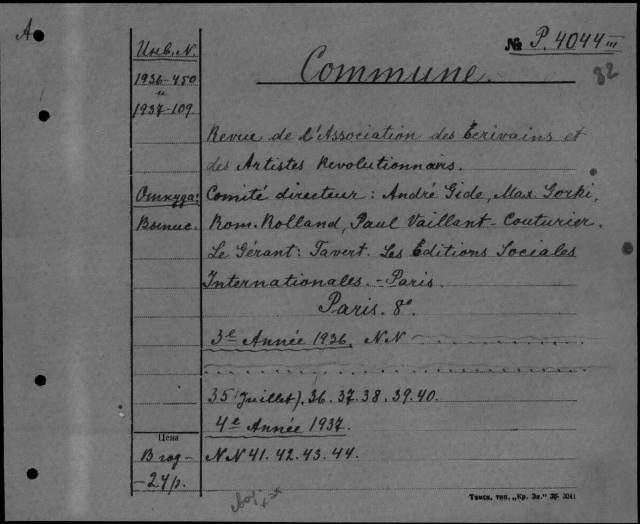 А
№ P. 4044 III
32
Инв. N.
1936-450
и
1937-109
Откуда:
Выпис.
Commune.
Revue de l'Association des Ecrivains et
des Artistes Revolutionnairs.
Comité directeur: André Gide, Max. Gorki,
Rom. Rolland, Paul Vaillant-Couturier.
Le Gérant: Tavert. Les Editions Sociales
Internationales. - Paris.
Paris. 8°
3e Année 1936. NN
35 (Juillet). 36. 37. 38. 39. 40.
4e Année 1937.
NN 41. 42. 43. 44.
Цена
В год -
- 24 р.
Томск, тип. „Кр. Зн." № 3041